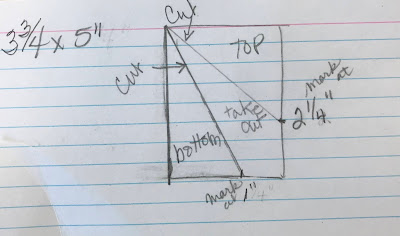 Cut
3 3/4 x 5"
TOP
Cut
mark
at
2 1/4"
take
out
bottom
mark
at 1"